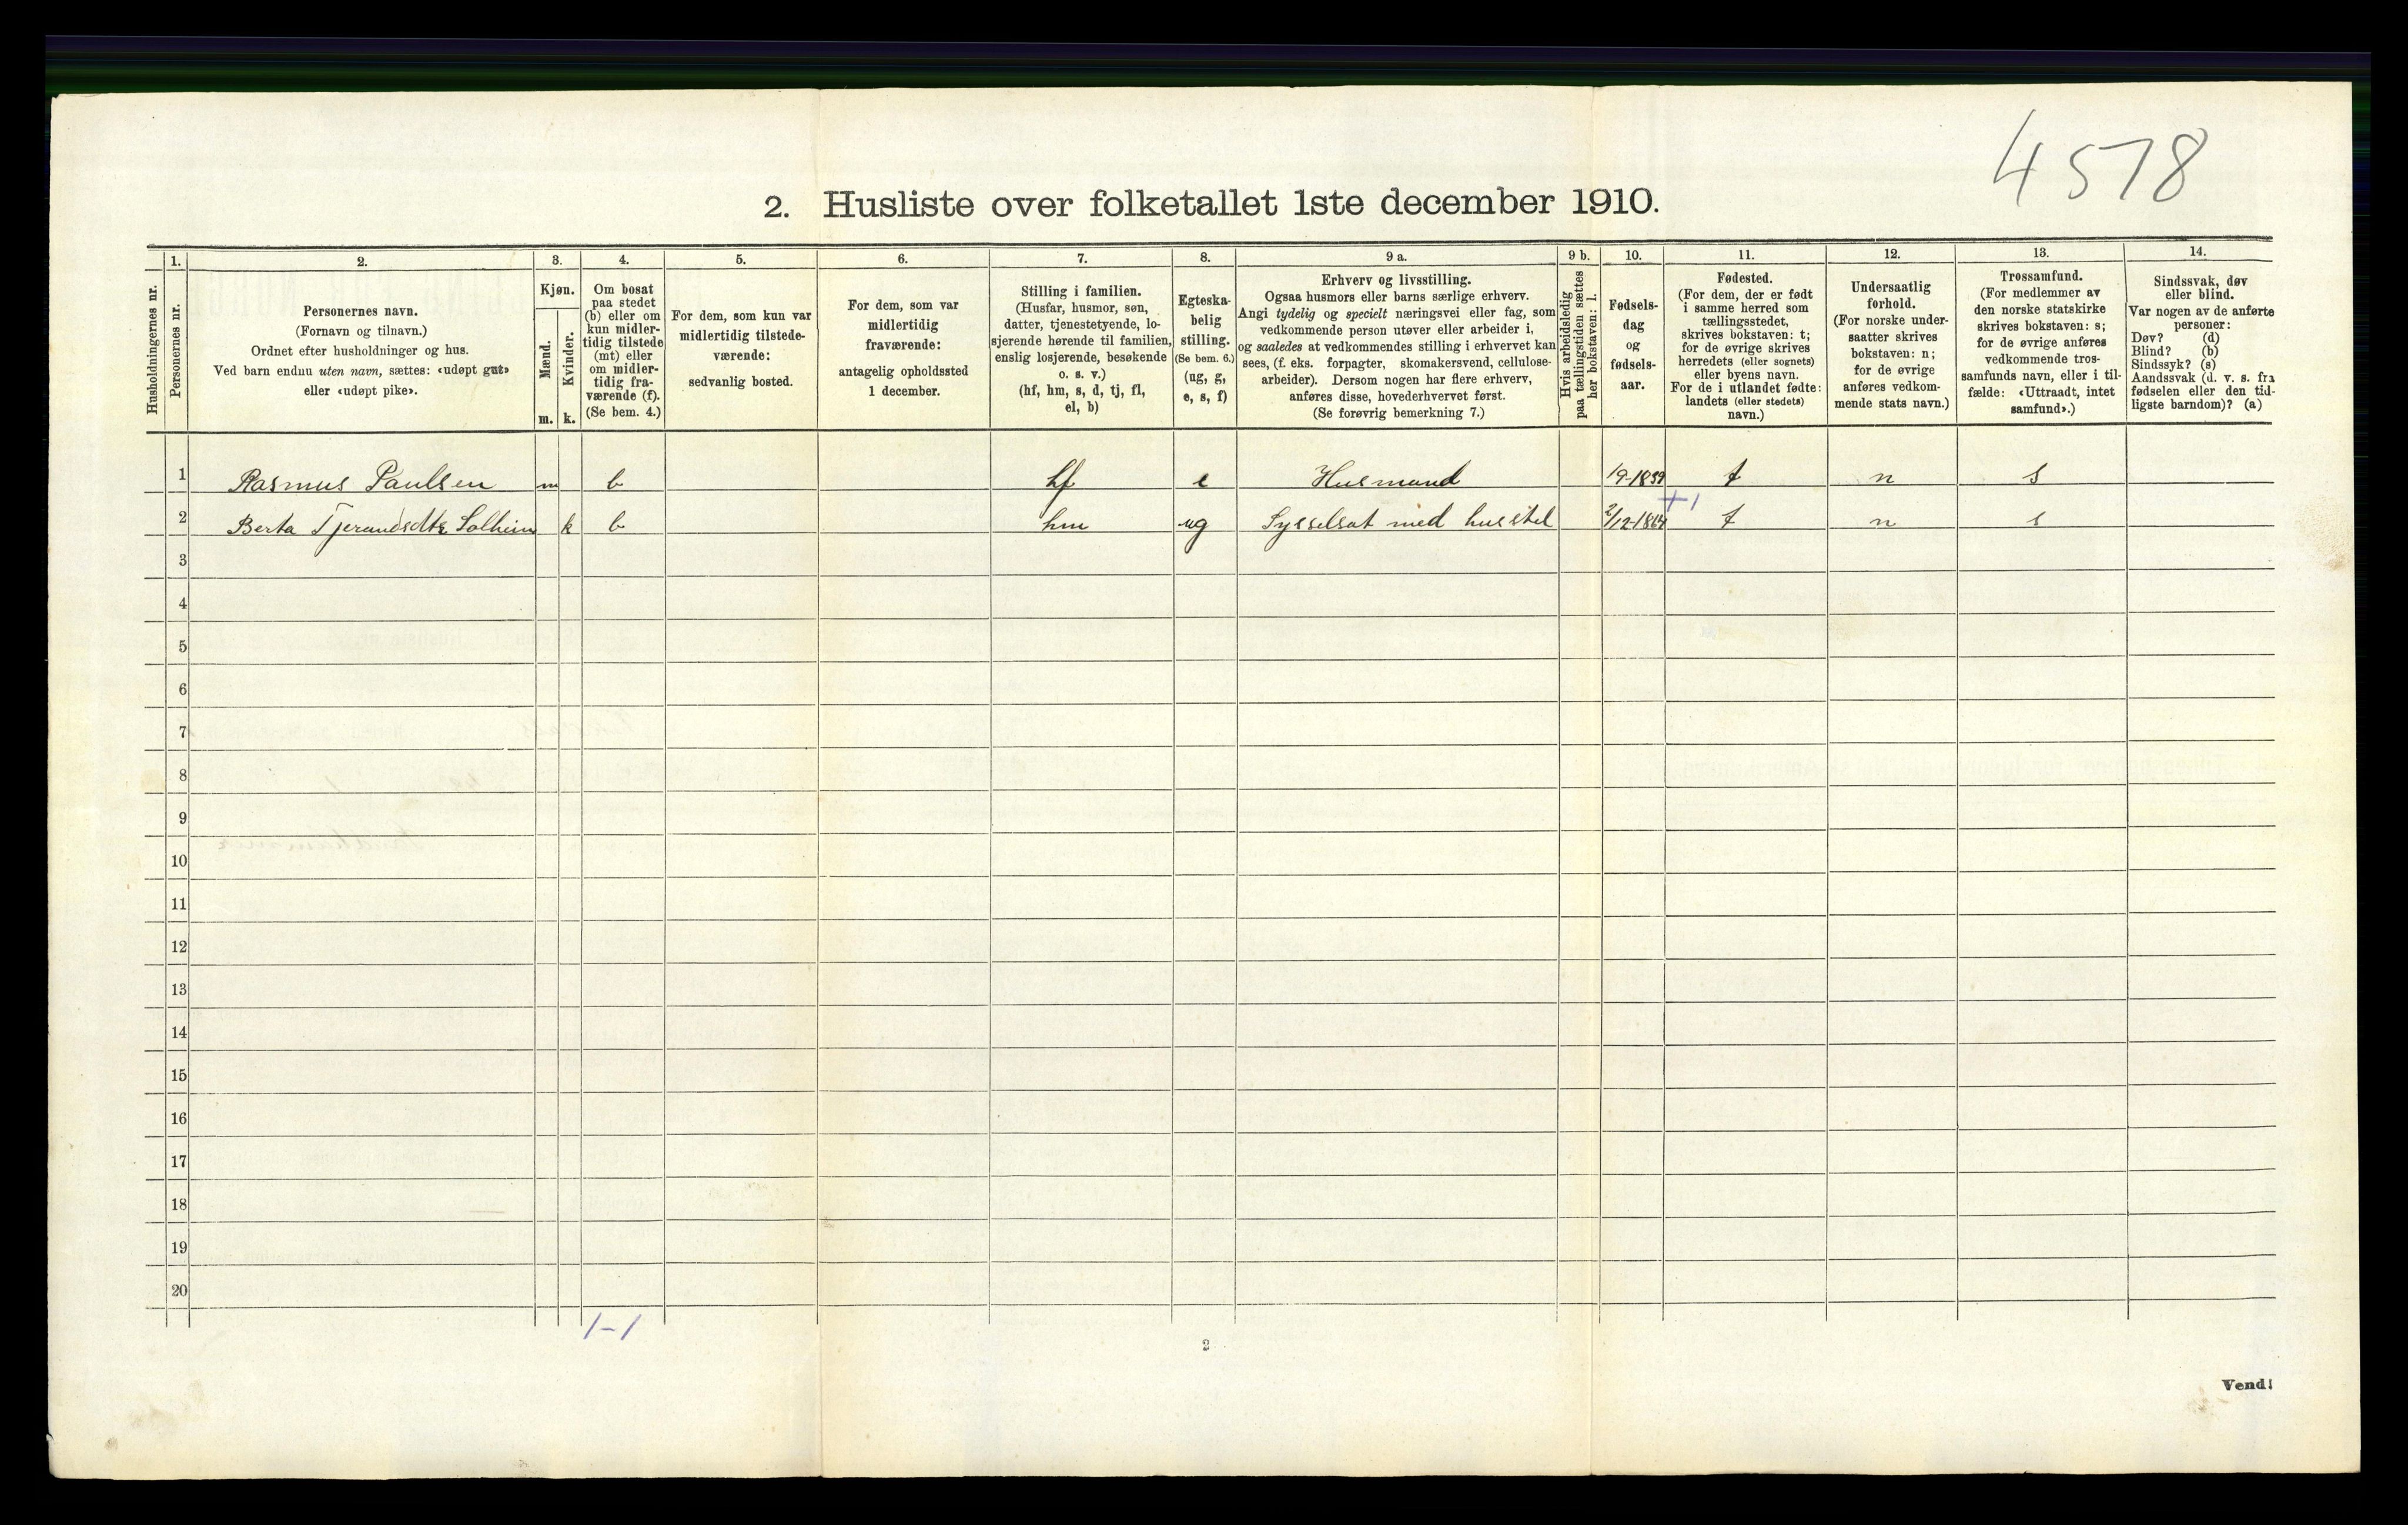 4578
2. Husliste over folketallet 1ste december 1910.
Husholdningernes nr.
1.
Personernes nr.
2.
Personernes navn.
(Fornavn og tilnavn.)
Ordnet efter husholdninger og hus.
Ved barn endnu uten navn, sættes: «udøpt gut»
eller «udøpt pike».
3.
Kjøn.
Mænd.
m.
Kvinder.
k.
4.
Om bosat
paa stedet
(b) eller om
kun midler-
tidig tilstede
(mt) eller
om midler-
tidig fra-
værende (f).
(Se bem. 4.)
5.
For dem, som kun var
midlertidig tilstede-
værende:
sedvanlig bosted.
6.
For dem, som var
midlertidig
fraværende:
antagelig opholdssted
1 december.
7.
Stilling i familien.
(Husfar, husmor, søn,
datter, tjenestetyende, lo-
sjerende hørende til familien,
enslig losjerende, besøkende
o. s. v.)
(hf, hm, s, d, tj, fl,
el, b)
8.
Egteska-
belig
stilling.
(Se bem. 6.)
(ug, g,
e, s, f)
9 a.
Erhverv og livsstilling.
Ogsaa husmors eller barns særlige erhverv.
Angi tydelig og specielt næringsvei eller fag, som
vedkommende person utøver eller arbeider i,
og saaledes at vedkommendes stilling i erhvervet kan
sees, (f. eks. forpagter, skomakersvend, cellulose-
arbeider). Dersom nogen har flere erhverv,
anføres disse, hovederhvervet først.
(Se forøvrig bemerkning 7.)
9 b.
Hvis arbeidsledig
paa tællingstiden sættes
her bokstaven: l.
10.
Fødsels-
dag
og
fødsels-
aar.
11.
Fødested.
(For dem, der er født
i samme herred som
tællingsstedet,
skrives bokstaven: t;
for de øvrige skrives
herredets (eller sognets)
eller byens navn.
For de i utlandet fødte:
landets (eller stedets)
navn.)
12.
Undersaatlig
forhold.
(For norske under-
saatter skrives
bokstaven: n;
for de øvrige
anføres vedkom-
mende stats navn.)
13.
Trossamfund.
(For medlemmer av
den norske statskirke
skrives bokstaven: s;
for de øvrige anføres
vedkommende tros-
samfunds navn, eller i til-
fælde: «Uttraadt, intet
samfund».)
14.
Sindssvak, døv
eller blind.
Var nogen av de anførte
personer:
Døv? (d)
Blind? (b)
Sindssyk? (s)
Aandssvak (d. v. s. fra
fødselen eller den tid-
ligste barndom)? (a)
1 Rasmus Paulsen m b hf e Husmand t n s
+1
2 Berta Tjerandsdtr Solheim k b hm ug Sysselsat med husstel 2/12-1864 t n s
3
4
5
6
7
8
9
10
11
12
13
14
15
16
17
18
19
20
1-1
2
Vend!